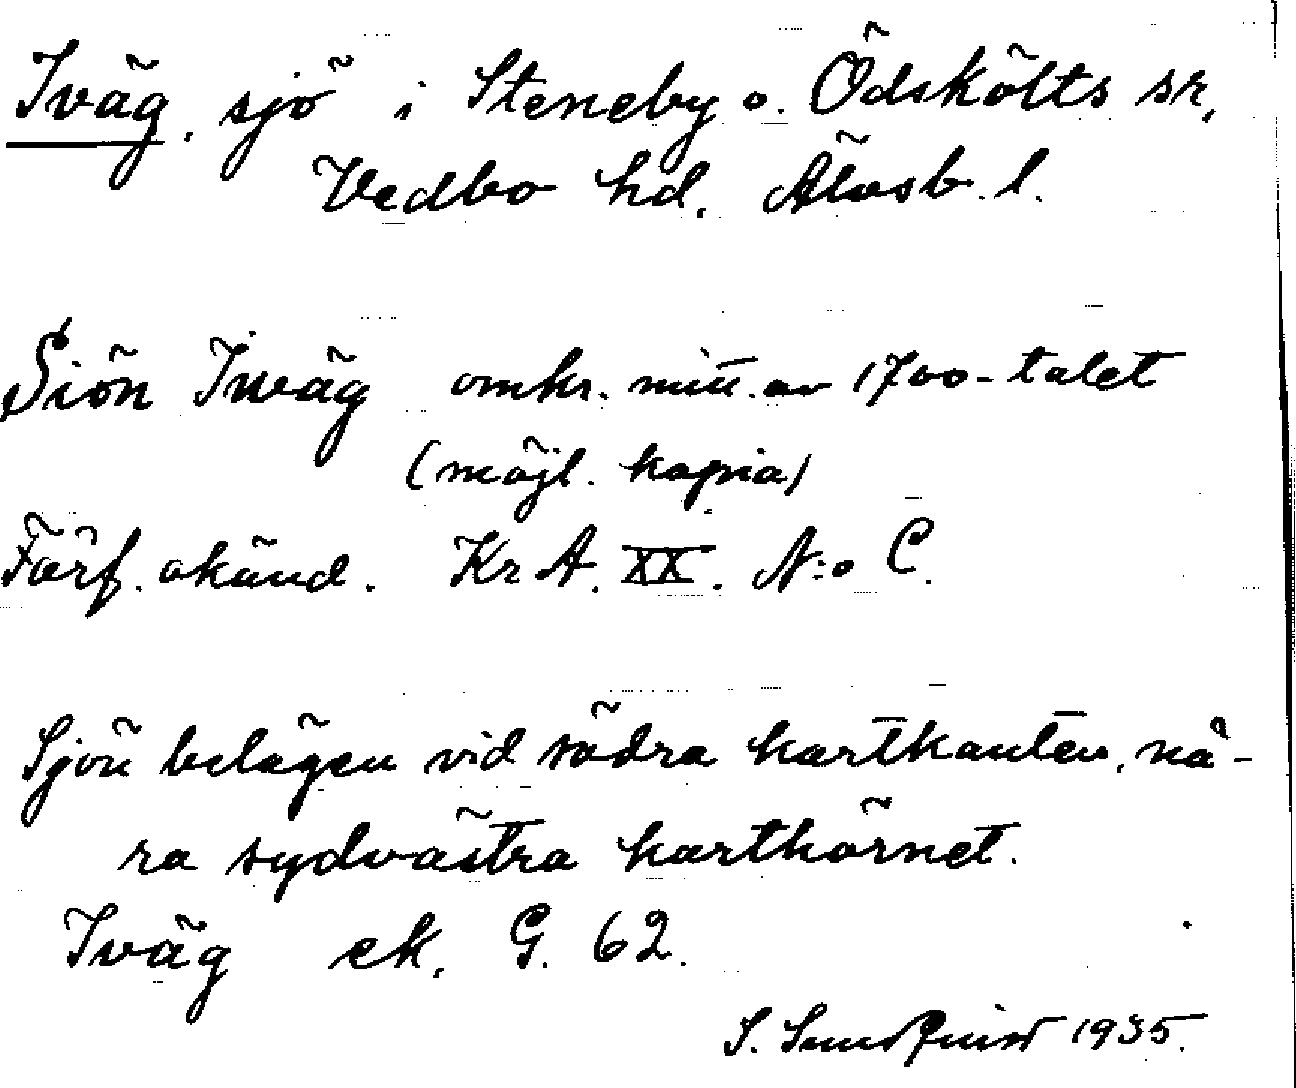 Iväg, sjö i Steneby o. Ödskölts sr,
Vedbo hd. Älvsb. l.
Siön Iwäg omkr. mitt. av 1700-talet
(möjl. kopia)
Förf. okänd. Kr A. XX. N:o C.
Sjön belägen vid södra kartkanten, nä-
ra sydvästra karthörnet.
Iväg ek. G. 62.
S. Sundquist 1935.